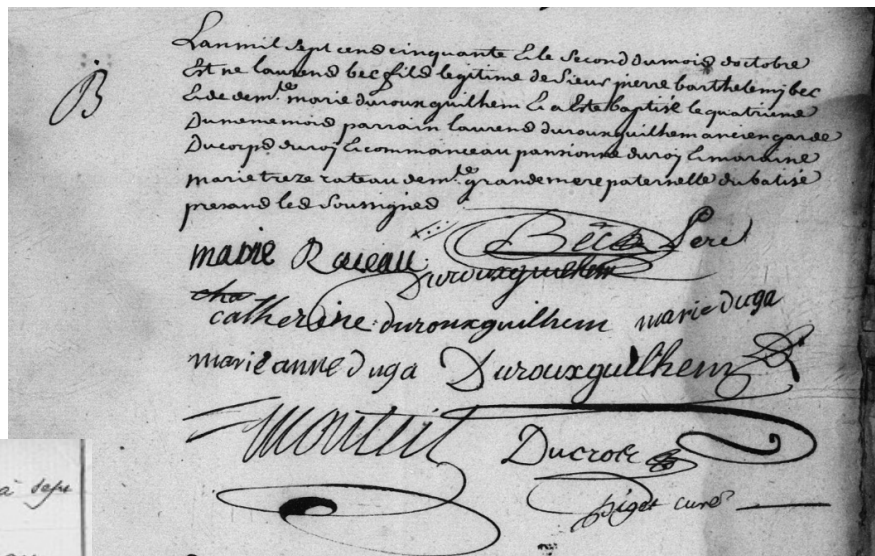 B
Lanmil sept cens cinquante & le second dumois doctobre
Est ne laurens bec fils legitime de sieur pierre barthelemj bec
& de demlle marie durouxguilhem & a Este baptisé le quatrieme
Dumeme mois parrain laurens durouxguilhem ancien garde
Du corps du roj & commanceau pansionné du roj & maraine
marie treze rateau demlle grandemere paternelle du batisé
presand les soussignes
Bec pere
marie Rateau Durouxguilhem
catherine durouxguilhem marie duga
marie anne duga Durouxguilhem
Monteil Ducros
piget curé
à sept